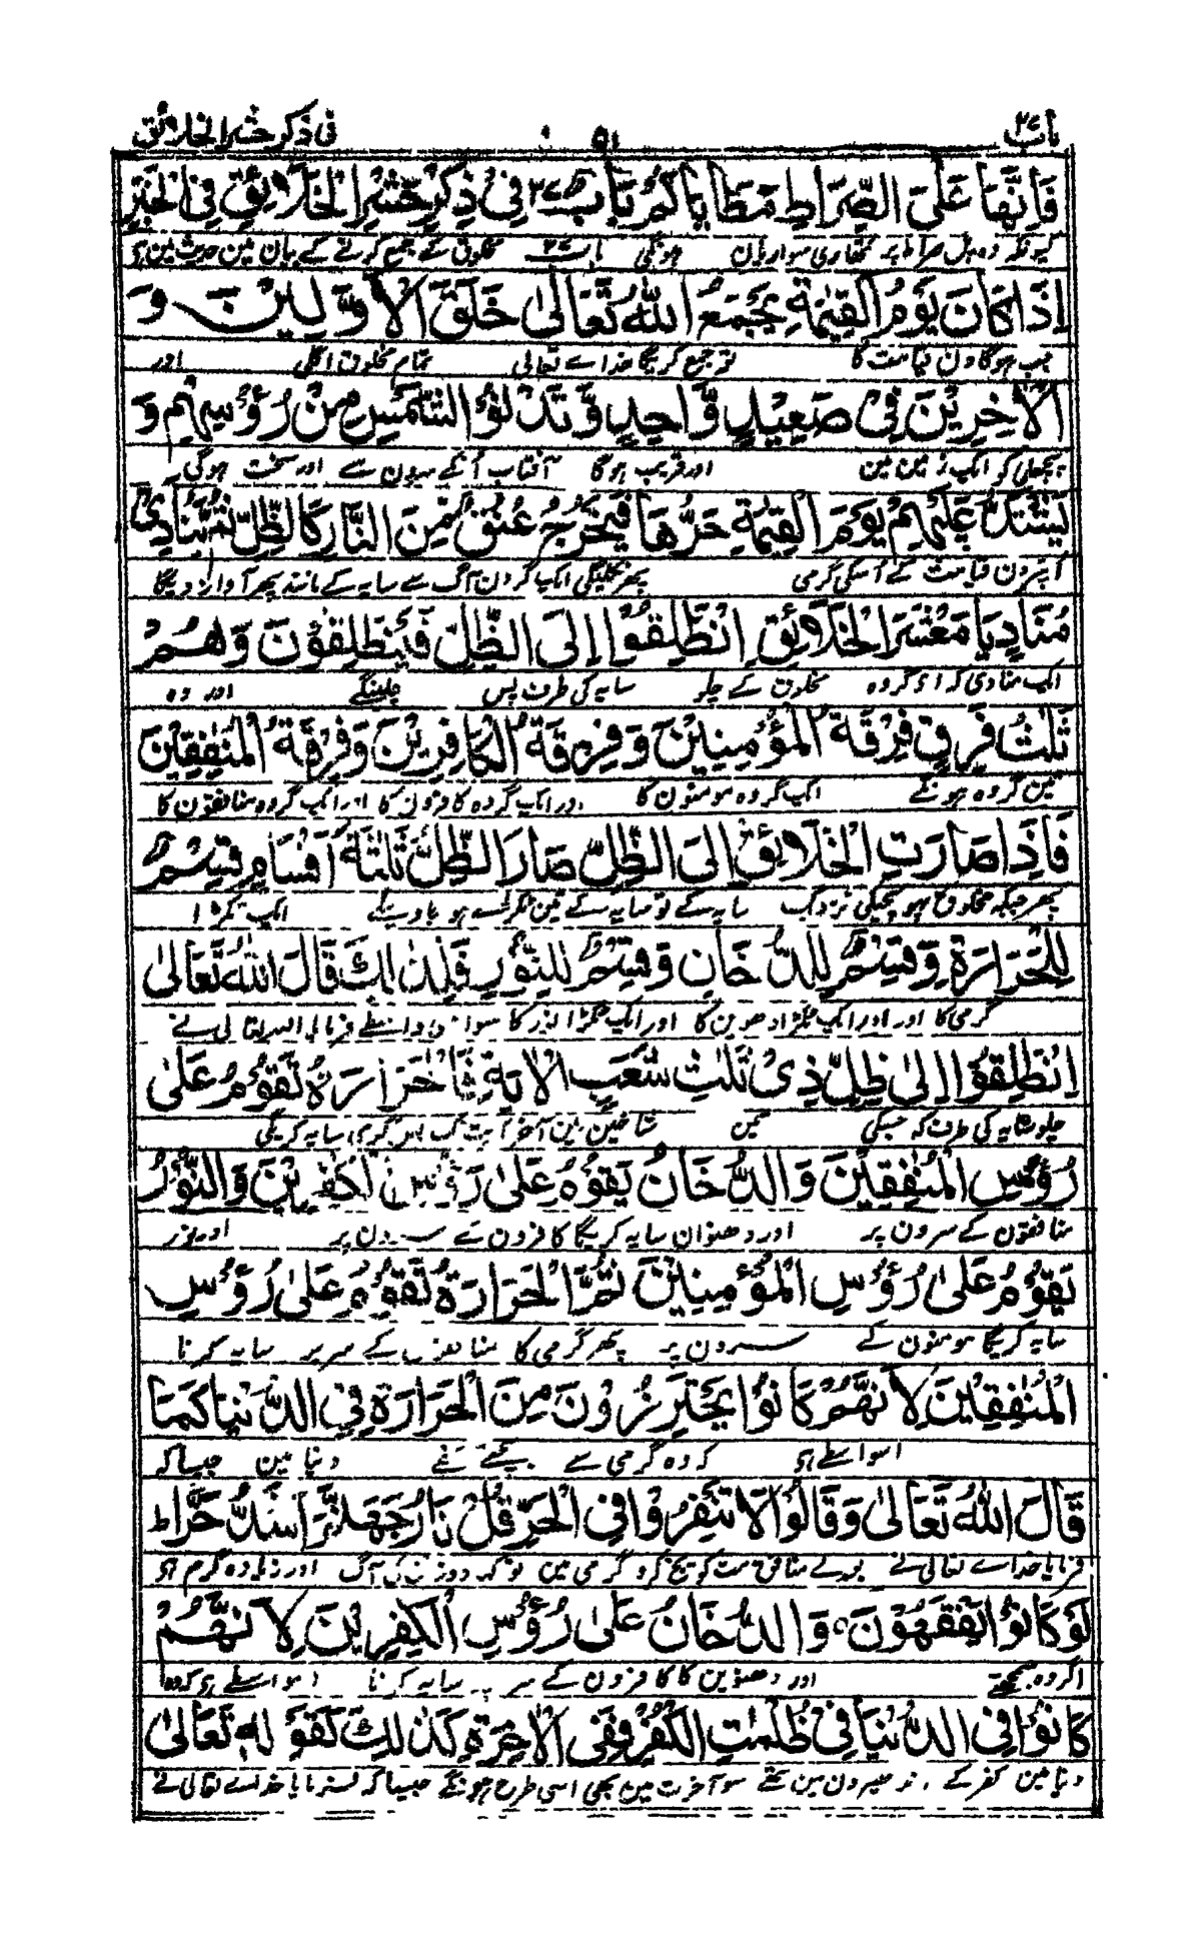 باب ۲۷ ۵۱ فی ذکر حشر الخلائق
فَاِنَّهَا عَلَی الصِّرَاطِ مَطَايَاكُمْ بَابُ ۲۷ فِیْ ذِكْرِ حَشْرِ الْخَلَائِقِ فِی الْخَبَرِ
کیونکہ وہ پل صراط پر تمھاری سواریاں ہونگی باب ۲۷ مخلوق کے جمع کرنے کے بیان مین حدیث مین ہی
اِذَا كَانَ يَوْمُ الْقِيٰمَةِ يَجْمَعُ اللّٰهُ تَعَالٰی خَلْقَ الْاَوَّلِيْنَ وَ
جب ہوگا دن قیامت کا تو جمع کریگا خداے تعالی تمام مخلوق اگلی اور
الْاٰخِرِيْنَ فِیْ صَعِيْدٍ وَّاحِدٍ وَّتَدْنُوْ الشَّمْسُ مِنْ رُؤُسِهِمْ وَ
پچھلی کو ایک زمین مین اور قریب ہوگا آفتاب اُنکے سرون سے اور سخت ہوگی
يَشْتَدُّ عَلَيْهِمْ يَوْمَ الْقِيٰمَةِ حَرُّهَا فَيَخْرُجُ عُنُقٌ مِّنَ النَّارِ كَالظِّلِّ ثُمَّ يُنَادِیْ
اُنپر دن قیامت کے اُسکی گرمی پھر نکلیگی ایک گردن آگ سے سایہ کے مانند پھر آواز دیگا
مُنَادٍ يَا مَعْشَرَ الْخَلَائِقِ اِنْطَلِقُوْا اِلَی الظِّلِّ فَيَنْطَلِقُوْنَ وَهُمْ
ایک منادی کہ اے گروہ مخلوق کے چلو سایہ کی طرف پس چلینگے اور وہ
ثَلٰثُ فِرَقٍ فِرْقَةُ الْمُؤْمِنِيْنَ وَفِرْقَةُ الْكَافِرِيْنَ وَفِرْقَةُ الْمُنٰفِقِيْنَ
تین گروہ ہونگے ایک گروہ مومنون کا اور ایک گروہ کافرون کا اور ایک گروہ منافقون کا
فَاِذَا صَارَتِ الْخَلَائِقُ اِلَی الظِّلِّ صَارَ الظِّلُّ ثَلٰثَةَ اَقْسَامٍ قِسْمٌ
پھر جبکہ مخلوق پہونچیگی نزدیک سایہ کے تو سایہ کے تین ٹکڑے ہو جاوینگے ایک ٹکڑا
لِلْحَرَارَةِ وَقِسْمٌ لِلدُّخَانِ وَقِسْمٌ لِلنُّوْرِ فَلِذٰلِكَ قَالَ اللّٰهُ تَعَالٰی
گرمی کا اور اور ایک ٹکڑا دھوین کا اور ایک ٹکڑا نور کا سو اسی واسطے فرمایا اللہ تعالی نے
اِنْطَلِقُوْا اِلٰی ظِلٍّ ذِیْ ثَلٰثِ شُعَبٍ الْاٰيَةِ فَالْحَرَارَةُ تَقُوْمُ عَلٰی
چلو سایہ کی طرف کہ جسکی تین شاخین ہین آخر آیت تک پس گرمی سایہ کریگی
رُؤُسِ الْمُنٰفِقِيْنَ وَالدُّخَانُ يَقُوْمُ عَلٰی رُؤُسِ الْكٰفِرِيْنَ وَالنُّوْرُ
منافقون کے سرون پر اور دھنوان سایہ کریگا کافرون کے سرون پر اور نور
يَقُوْمُ عَلٰی رُؤُسِ الْمُؤْمِنِيْنَ ثُمَّ الْحَرَارَةُ تَقُوْمُ عَلٰی رُؤُسِ
سایہ کریگا مومنون کے سرون پر پھر گرمی کا منافقون کے سر پر سایہ کرنا
الْمُنٰفِقِيْنَ لِاَنَّهُمْ كَانُوْا يَحْتَرِزُوْنَ مِنَ الْحَرَارَةِ فِی الدُّنْيَا كَمَا
اسواسطے ہی کہ وہ گرمی سے بچتے تھے دنیا مین جیسا کہ
قَالَ اللّٰهُ تَعَالٰی وَقَالُوْا لَا تَنْفِرُوْا فِی الْحَرِّ قُلْ نَارُ جَهَنَّمَ اَشَدُّ حَرًّا ط
فرمایا خداے تعالی نے بولے منافق مت کوچ کرو گرمی مین تو کہہ دوزخ کی آگ اور زیادہ گرم ہی
لَوْ كَانُوْا يَفْقَهُوْنَ وَالدُّخَانُ عَلٰی رُؤُسِ الْكٰفِرِيْنَ لِاَنَّهُمْ
اگر وہ سمجھتے اور دھنوین کا کافرون کے سر پر سایہ کرنا اسواسطے ہی کہ وہ
كَانُوْا فِی الدُّنْيَا فِیْ ظُلُمٰتِ الْكُفْرِ وَفِی الْاٰخِرَةِ كَذٰلِكَ كَقَوْلِهٖ تَعَالٰی
دنیا مین کفر کے اندھیرون مین تھے سو آخرت مین بھی اسی طرح ہونگے جیسا کہ فرمایا خداے تعالی نے